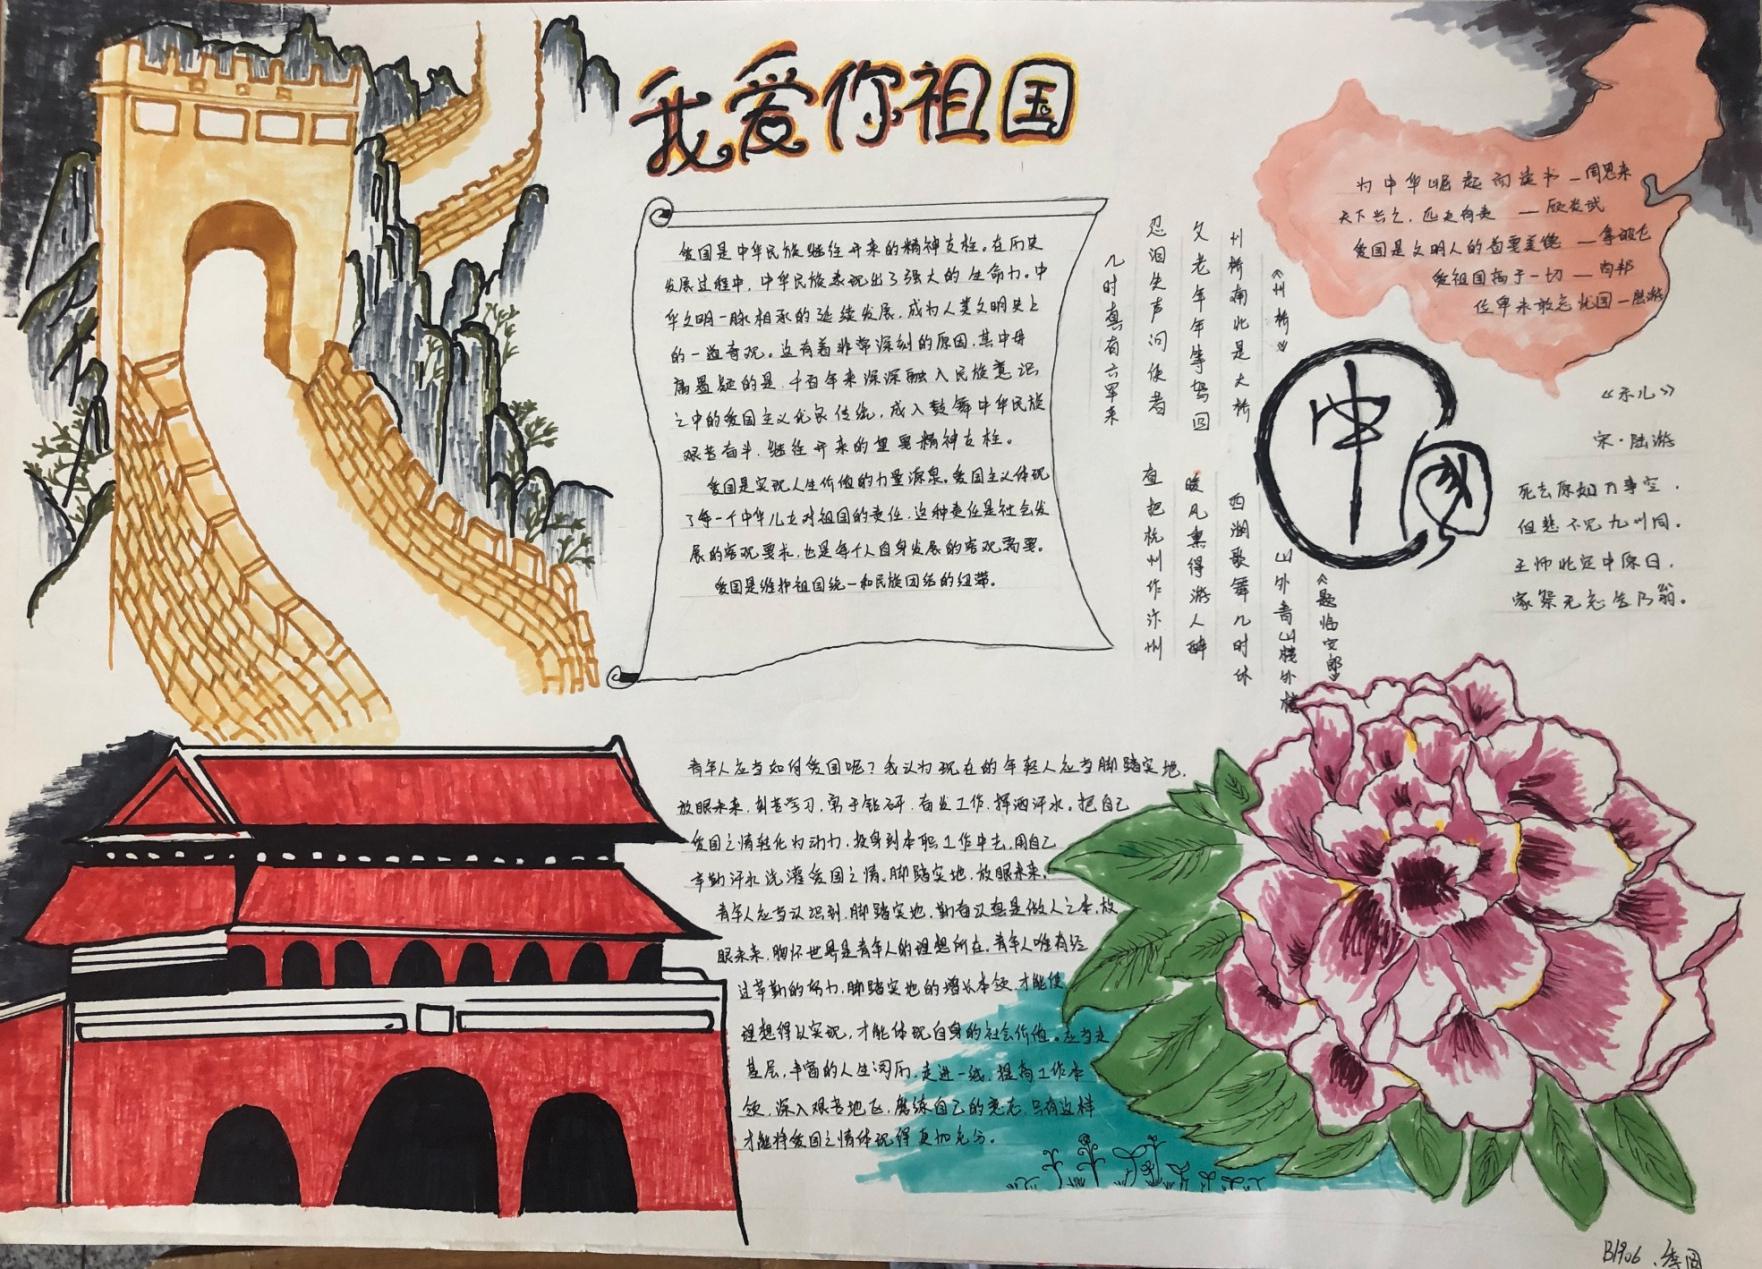 我爱你祖国
爱国是中华民族继往开来的精神支柱。在历史
发展过程中，中华民族表现出了强大的生命力。中
华文明一脉相承的延续发展，成为人类文明史上
的一道奇观。这有着非常深刻的原因，其中毋
庸置疑的是，千百年来深深融入民族意识
之中的爱国主义优良传统，成入鼓舞中华民族
艰苦奋斗，继往开来的重要精神支柱。
爱国是实现人生价值的力量源泉。爱国主义体现
了每一个中华儿女对祖国的责任，这种责任是社会发
展的客观要求，也是每个人自身发展的客观需要。
爱国是维护祖国统一和民族团结的纽带。
《州桥》
州桥南北是大桥
父老年年等驾回
忍泪失声问使者
几时真有六军来
《题临安邸》
山外青山楼外楼
西湖歌舞几时休
暖风熏得游人醉
直把杭州作汴州
为中华崛起而读书—周恩来
天下兴亡，匹夫有责 —顾炎武
爱国是文明人的首要美德 —拿破仑
爱祖国高于一切 —肖邦
位卑未敢忘忧国—陆游
中国
《示儿》
宋·陆游
死去原知万事空，
但悲不见九州同。
王师北定中原日，
家祭无忘告乃翁。
青年人应当如何爱国呢？我认为现在的年轻人应当脚踏实地，
放眼未来，刻苦学习，勇于钻研，奋发工作，挥洒汗水。把自己
爱国之情转化为动力，投身到本职工作中去，用自己
辛勤汗水浇灌爱国之情。脚踏实地，放眼未来。
青年人应当认识到，脚踏实地，勤奋认真是做人之本，放
眼未来，胸怀世界是青年人的理想所在。青年人唯有经
过辛勤的努力，脚踏实地的增长本领，才能使
理想得以实现，才能体现自身的社会价值。应当走
基层，丰富的人生阅历，走进一线，提高工作本
领，深入艰苦地区，磨练自己的意志，只有这样
才能将爱国之情体现得更加充分。
B1906